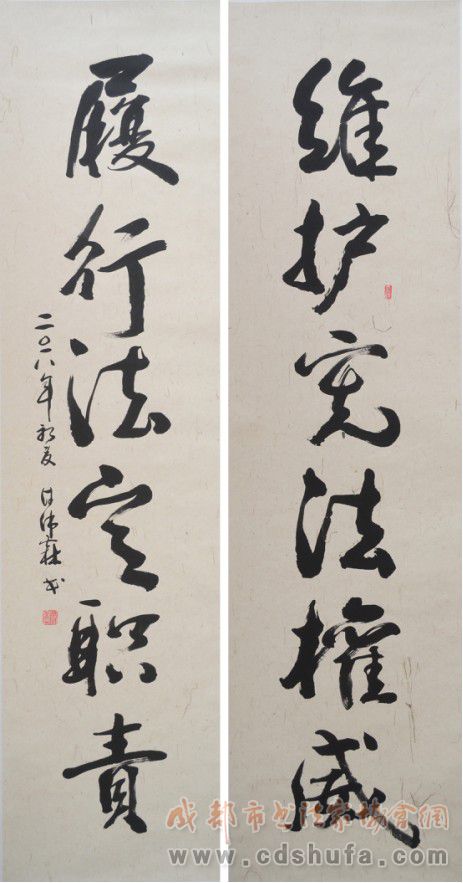 維护宪法權威
履行法定职責
二〇一八年初夏
成都市书法家協會網
www.cdshufa.com